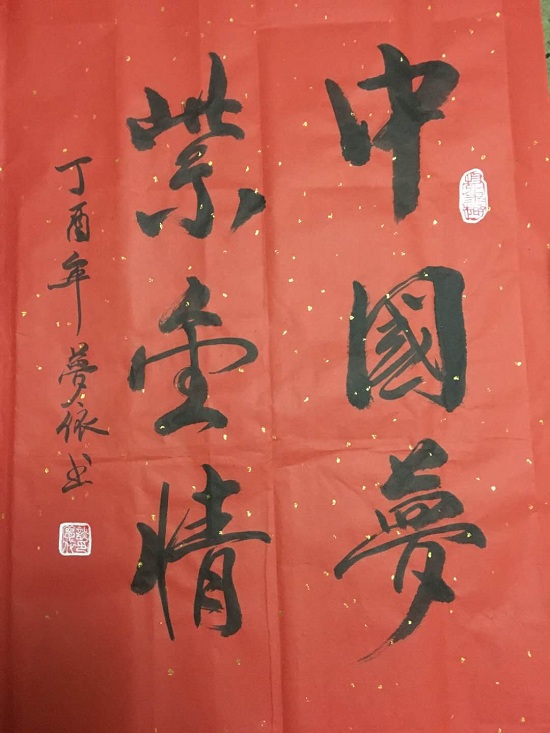 中國夢
紫情
丁酉年 夢依书